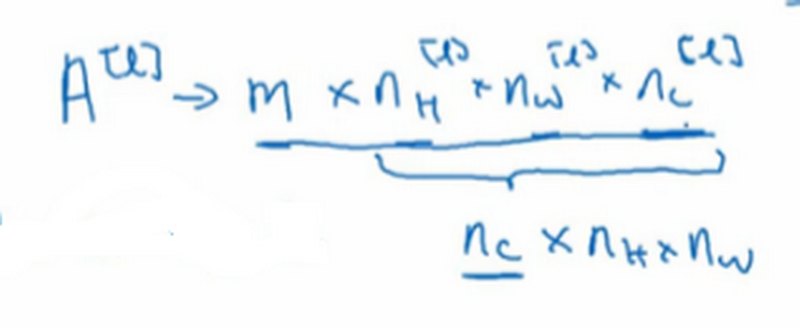 A^[l] → m × n_H^[l] × n_W^[l] × n_C^[l]
n_C × n_H × n_W